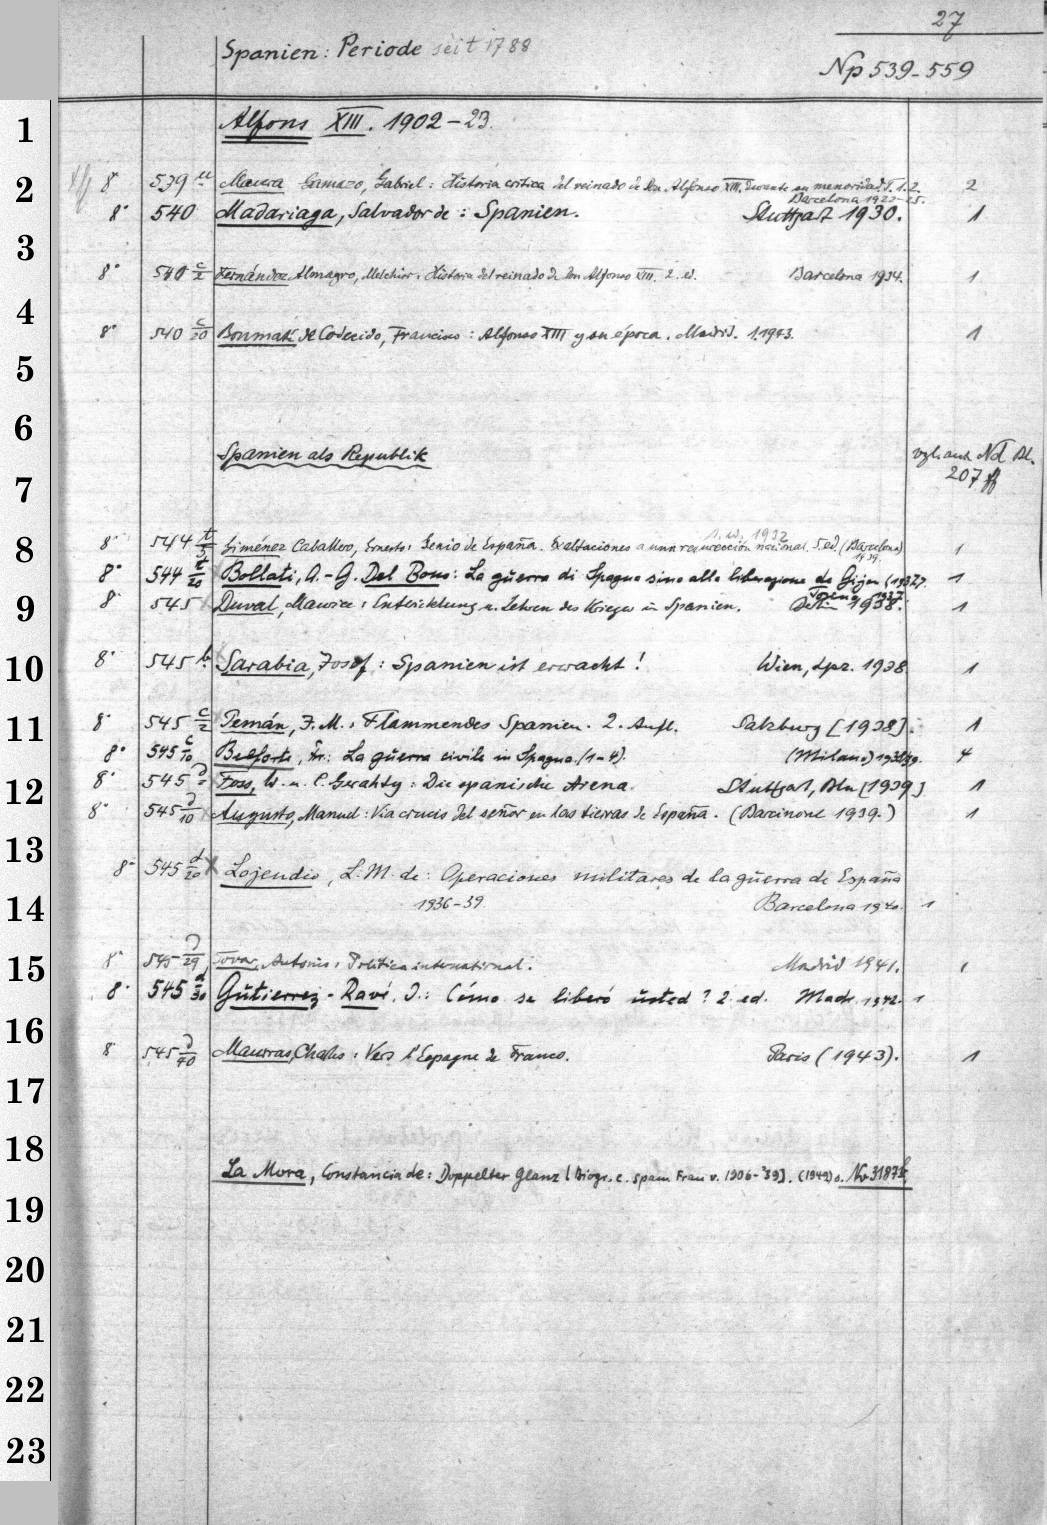 27
Spanien: Periode seit 1788
Np 539-559
1
Alfons XIII. 1902-23.
2
8° 539 u Maura Gamazo, Gabriel: Historia critica del reinado de Don Alfonso XIII. durante su menoridad. T. 1. 2. 2
Barcelona 1922-25.
8° 540 Madariaga, Salvador de: Spanien. Stuttgart 1930. 1
3
8° 540 c/2 Fernández Almagro, Melchior: Historia del reinado de Don Alfonso XIII. 2. ed. Barcelona 1934. 1
4
8° 540 c/20 Bonmatí de Codecido, Francisco: Alfonso XIII y su época. Madrid. 1943. 1
5
6
Spanien als Republik
vgl. auch Nd Bl.
207 ff
7
1. ed. 1932
8
8° 544 t/5 Giménez Caballero, Ernesto: Genio de España. Exaltaciones a una resurrección nacional. 5. ed. (Barcelona) 1
1939.
8° 544 t/20 Bollati, A. - G. Del Bono: La guerra di Spagna sino alla liberazione de Gijon (1937). 1
Torino 1937
9
8° 545 Duval, Maurice: Entwicklung u. Lehren des Krieges in Spanien. Berlin 1938. 1
10
8° 545 b Sarabia, Josef: Spanien ist erwacht! Wien, Lpz. 1938 1
11
8° 545 c/2 Pemán, J. M.: Flammendes Spanien. 2. Aufl. Salzburg [1938]. 1
8° 545 c/10 Belforte, Fr.: La guerra civile in Spagna. (1-4). (Milano) 1938/39. 4
12
8° 545 d Foss, W. u. C. Gerahty: Die spanische Arena. Stuttgart, Bln [1939] 1
8° 545 d/10 Augusto, Manuel: Via crucis del señor en las tierras de España. (Barcinone 1939.) 1
13
8° 545 d/20 Lojendio, L. M. de: Operaciones militares de la guerra de España
1936-39 Barcelona 1940. 1
14
15
8° 545 d/29 Tovar, Antonio: Politica international. Madrid 1941. 1
8° 545 d/30 Gutierrez-Ravé, J.: Cómo se liberó usted? 2. ed. Madr. 1942. 1
16
8° 545 d/40 Maurras, Charles: Vers l'Espagne de Franco. Paris (1943). 1
17
18
La Mora, Constancia de: Doppelter Glanz [Biogr. e. span. Frau v. 1906-'39]. (1949) s. Nv 3187
19
20
21
22
23